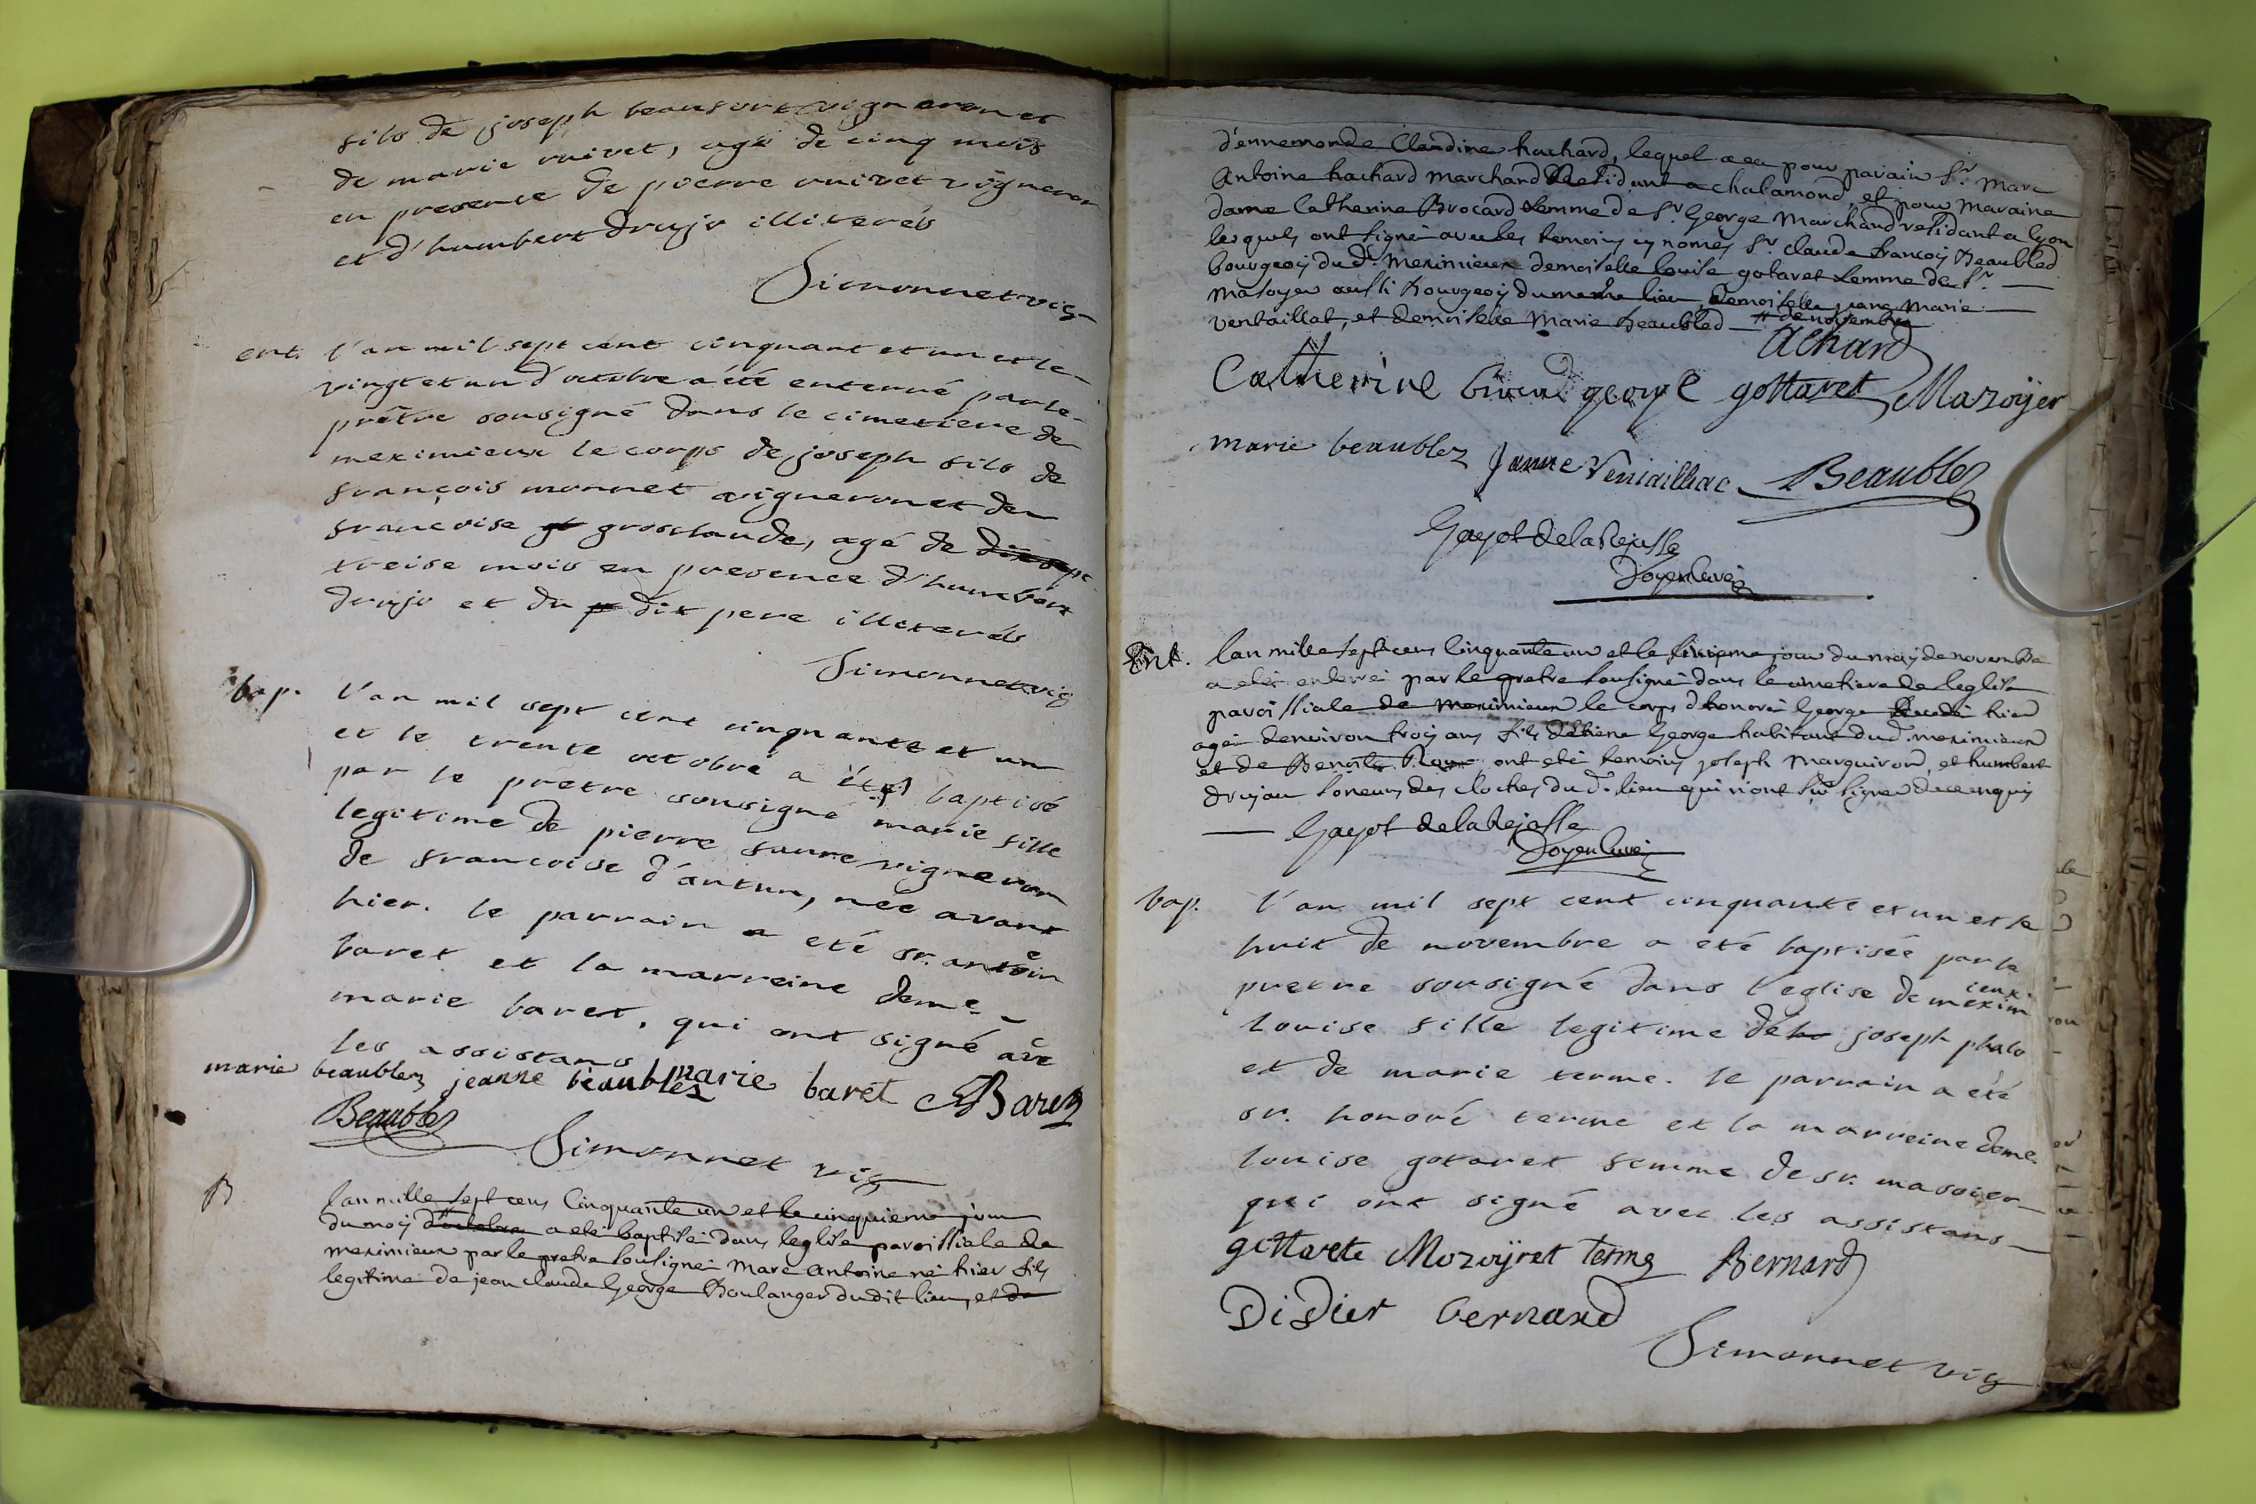 fils de joseph beaufort vigneron et
de marie ruivet, agé de cinq mois
en presence de pierre ruivet vigneron
et d'humbert drujo illiterés
Simonnet vic
ent. l'an mil sept cent cinquant et un et le
vingt et un d'octobre a été enterré par le
prêtre sousigné dans le cimetiere de
meximieux le corps de joseph fils de
françois monnet vigneron et de
françoise groslaude, agé de
treise mois en presence d'humbert
drujo et du dit pere illiterés
Simonnet vic
bap. l'an mil sept cent cinquante et un
et le trente octobre a été baptisé
par le prétre sousigné marie fille
legitime de pierre vigneron
de francoise d'antun, née avant
hier. le parrain a eté sr. antoine
baret et la marreine deme
marie baret, qui ont signé avec
les assistans
marie beaublez jeanne beaublez marie baret Baret
Beaublez
Simonnet vic
B lan mille sept cens Cinquante un et le cinquieme jour
du moy d'octobre a eté baptisé dans leglise paroissiale de
meximieux par le pretre sousigné Marc Antoine né hier fils
legitime de jean claude George Boulanger dudit lieu, et de
d'ennemonde Claudine hachard, lequel a eu pour parain Sr. Marc
Antoine hachard marchand Residant a chalamond, et pour maraine
dame Catherine Brocard femme de Sr. George Marchand residant a lyon
lesquels ont signé avec les temoins cy només Sr. claude francoy Beaubled
bourgeoy du dt. Meximieux demoiselle louise gotaret femme de Sr.
Masoyer aussi Bourgeoy du meme lieu, demoiselle jeane Marie
ventaillat, et demoiselle Marie Beaubled # de novembre
Achard
Catherine george gottaret Mazoÿer
marie beaublez Janne Beaublez
Gayot de la Rejasse
Doyen Curé
Ent. lan mille sept cens Cinquante un et le jour du moy de novembre
a eté enterré par le pretre sousigné dans le cimetiere de leglise
paroissiale de meximieux le corps d'honoré George hier
agé denviron troy ans fils George habitant du dt. meximieux
et de Benoite ont eté temoins joseph Marguiron, et humbert
drujou soneurs des cloches du dt. lieu qui n'ont sceu signer de ce enquis
Gayot de la Rejasse
Doyen Curé
bap. l'an mil sept cent cinquante et un et le
huit de novembre a eté baptisée par le
pretre sousigné dans l'eglise de meximieux
louise fille legitime de joseph
et de marie terme. le parrain a été
sr. honoré terme et la marreine deme.
louise gotaret femme de sr. masoier
qui ont signé avec les assistans
gottarete Mozoÿret terme Bernard
Didier bernard
Simonnet vic